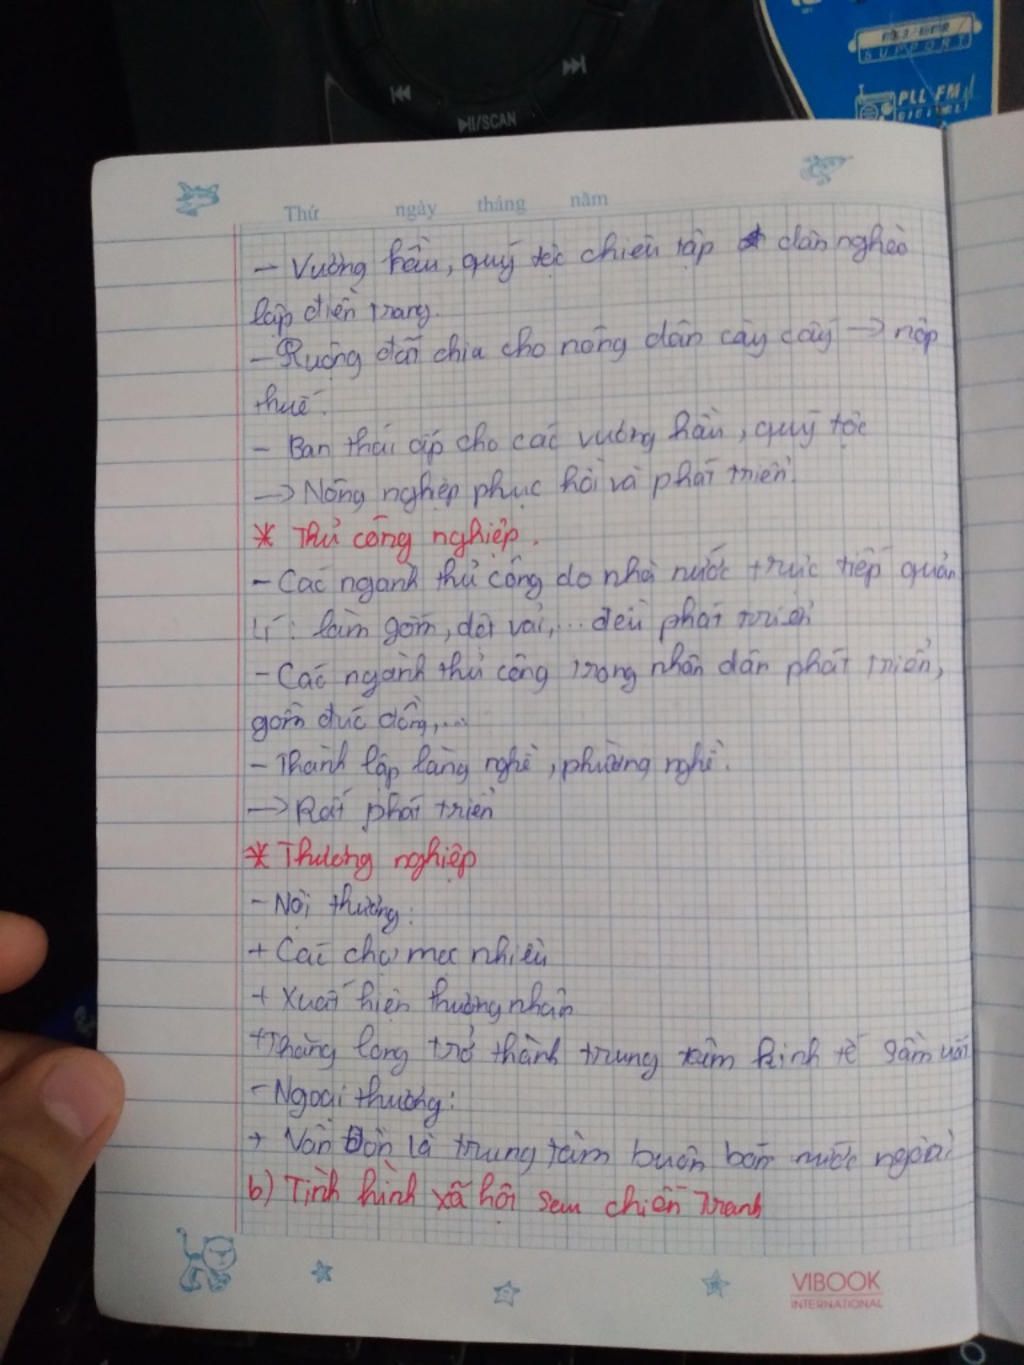 MP3/WMA
SUPPORT
PLL FM
DIGITAL
▶II/SCAN
Thứ ngày tháng năm
- Vương hầu, quý tộc chiêu tập dân nghèo
lập điền trang.
- Ruộng đất chia cho nông dân cày cấy → nộp
thuế.
- Ban thái ấp cho các vương hầu, quý tộc
→ Nông nghiệp phục hồi và phát triển.
* Thủ công nghiệp.
- Các ngành thủ công do nhà nước trực tiếp quản
lí: làm gốm, dệt vải,... đều phát triển
- Các ngành thủ công trong nhân dân phát triển,
gốm đúc đồng,...
- Thành lập làng nghề, phường nghề.
→ Rất phát triển
* Thương nghiệp
- Nội thương:
+ Các chợ mọc nhiều
+ Xuất hiện thương nhân
+ Thăng long trở thành trung tâm kinh tế sầm uất
- Ngoại thương:
+ Vân Đồn là trung tâm buôn bán nước ngoài
b) Tình hình xã hội sau chiến tranh
VIBOOK
INTERNATIONAL